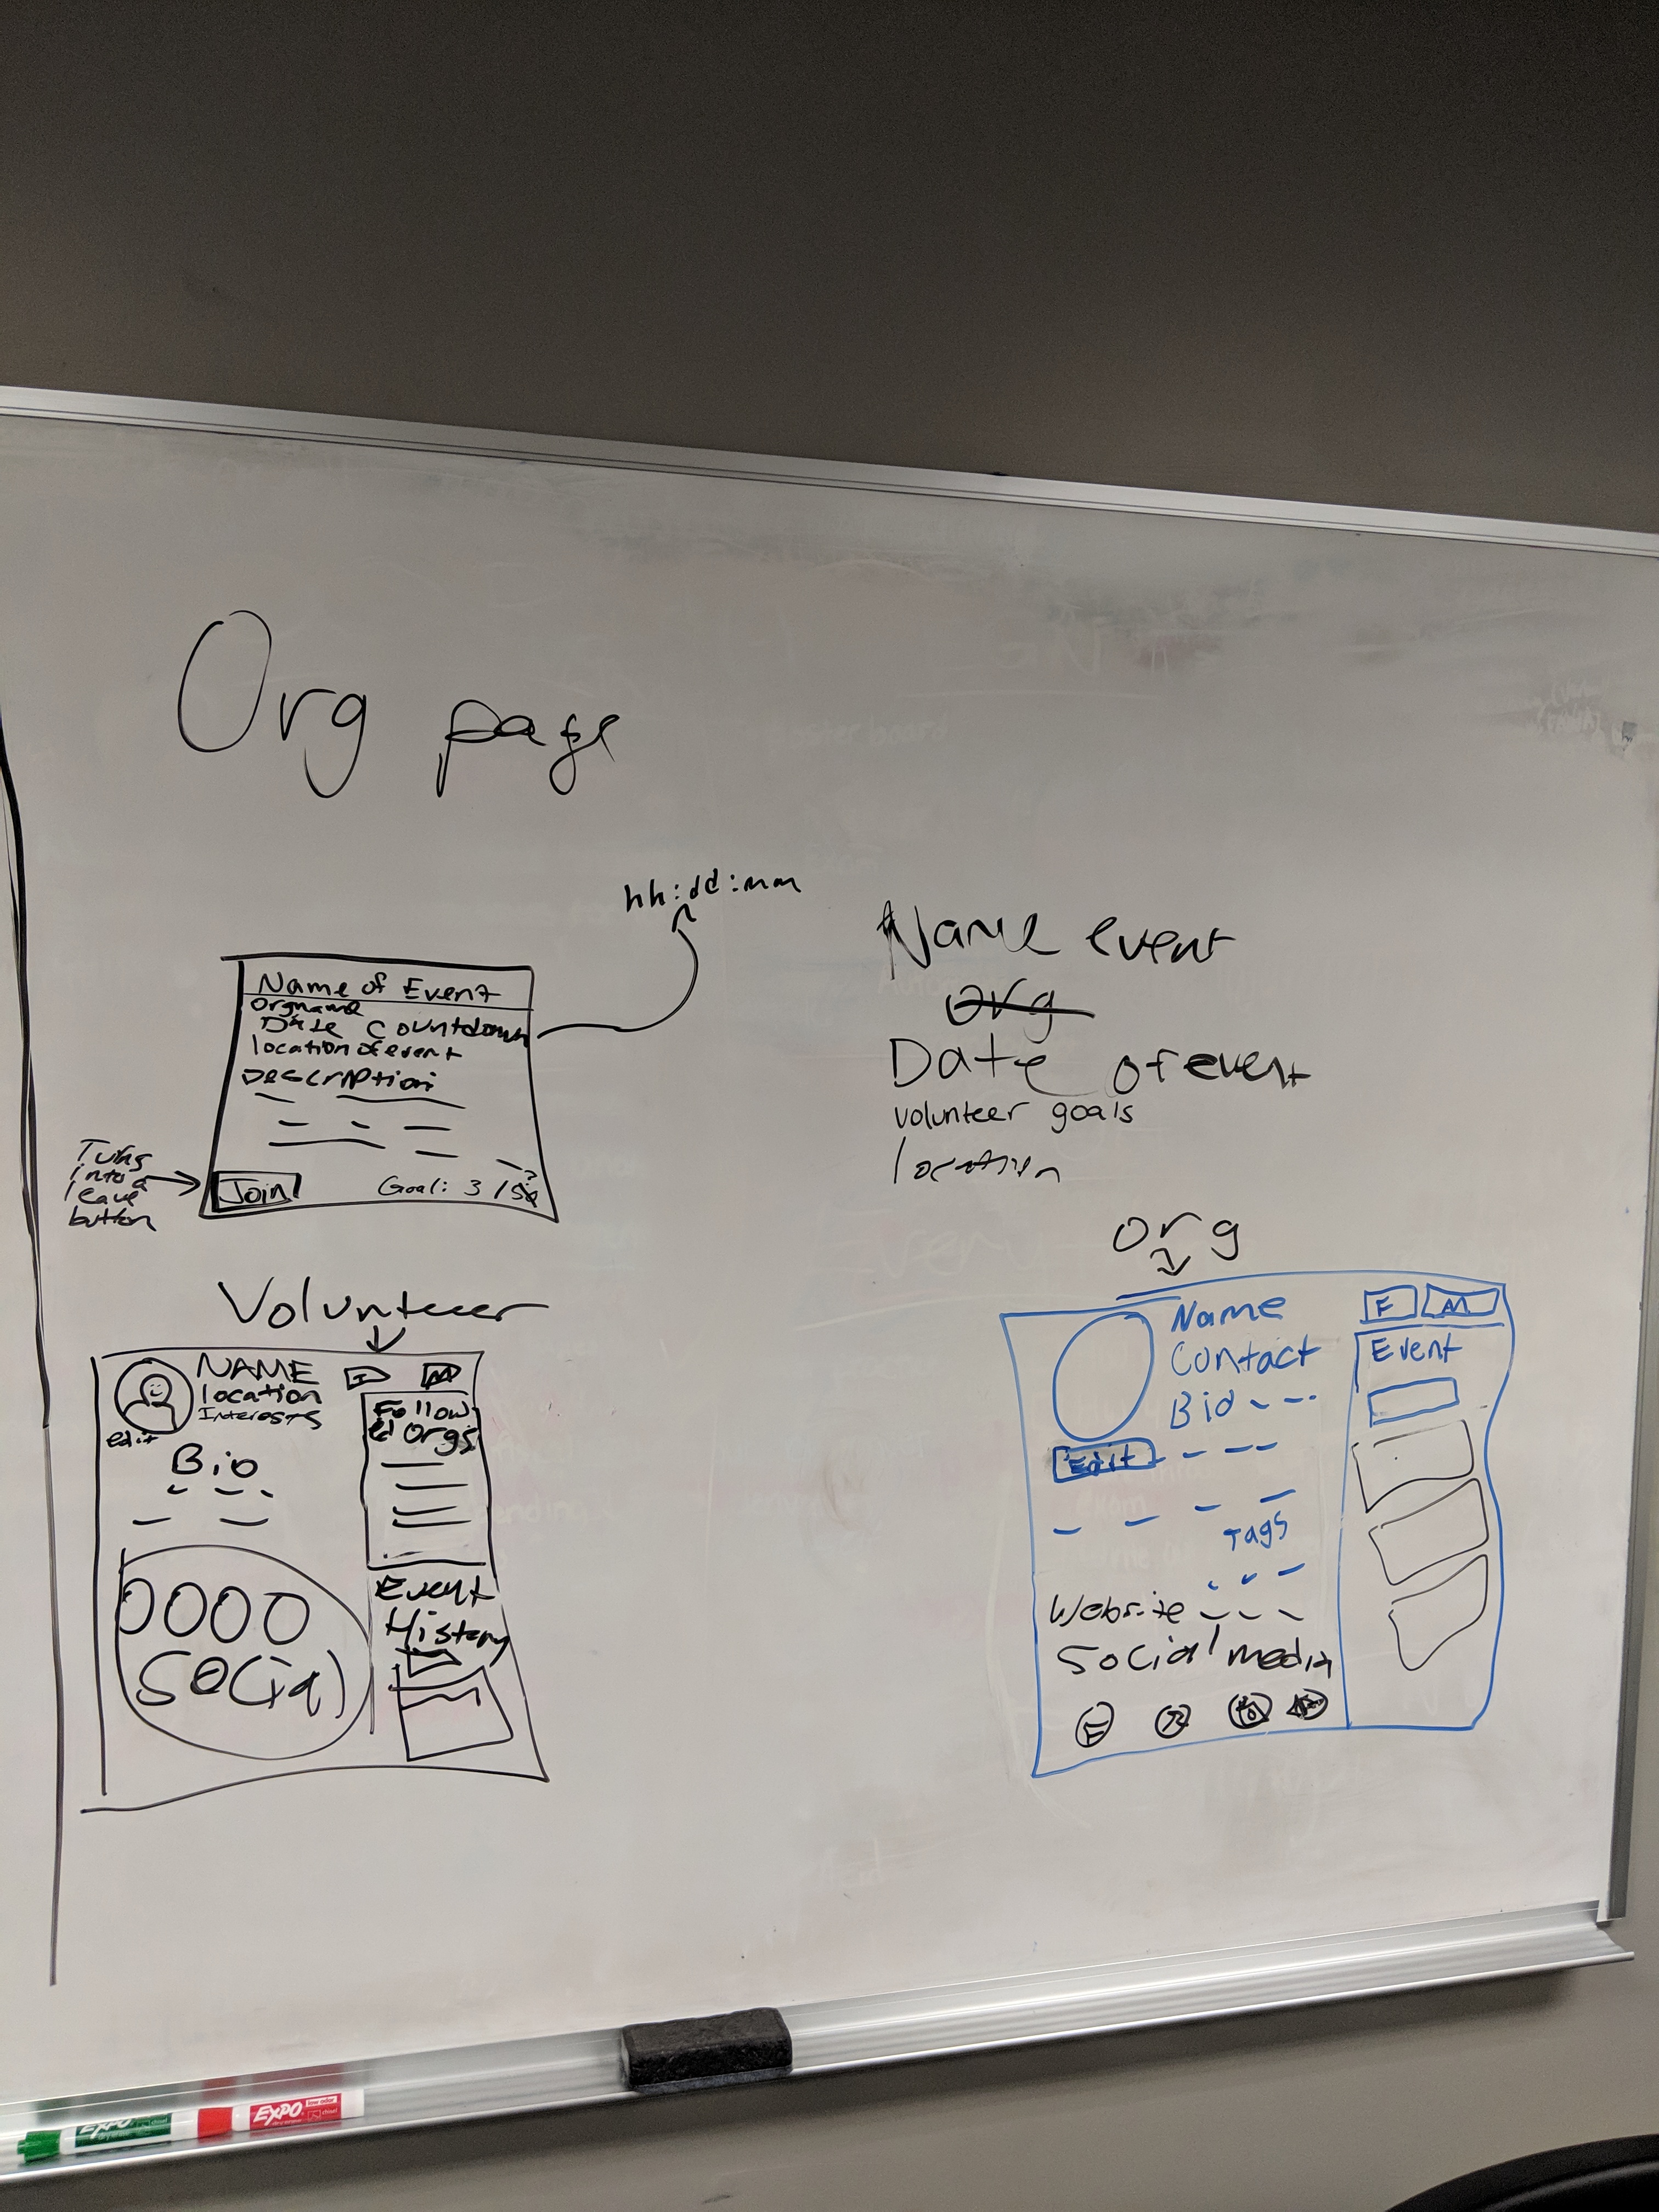 Org page
hh:dd:mm
Name of Event
orgname
Date Countdown
location of event
Description
Join
Goal: 3 / 50
Turns
into a
leave
button
Name event
org
Date of event
volunteer goals
location
Volunteer
NAME
location
Interests
edit
Bio
Social
Follow
ed Orgs
Event
History
org
Name
Contact
Bio
Edit
Tags
Website
Social media
F
M
Event
EXPO
EXPO
low odor